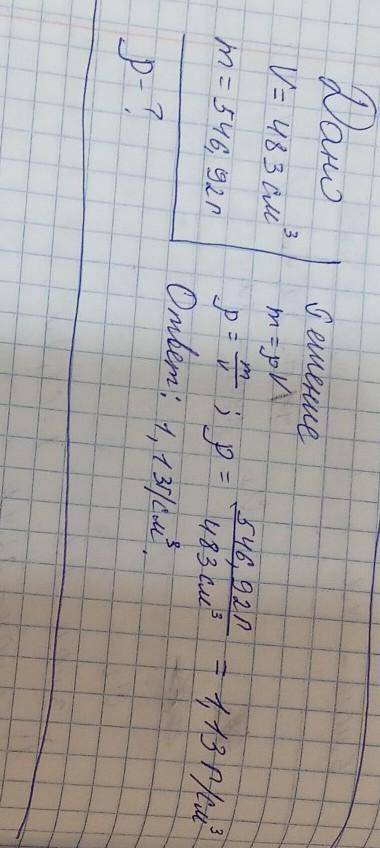 Дано
V = 483 см³
m = 546,92 г
ρ - ?
Решение
m = ρV
ρ = m/v ; ρ = 546,92 г / 483 см³ = 1,13 г/см³
Ответ: 1,13 г/см³.